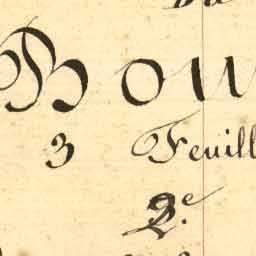 Bou
3 Feuill
2.e